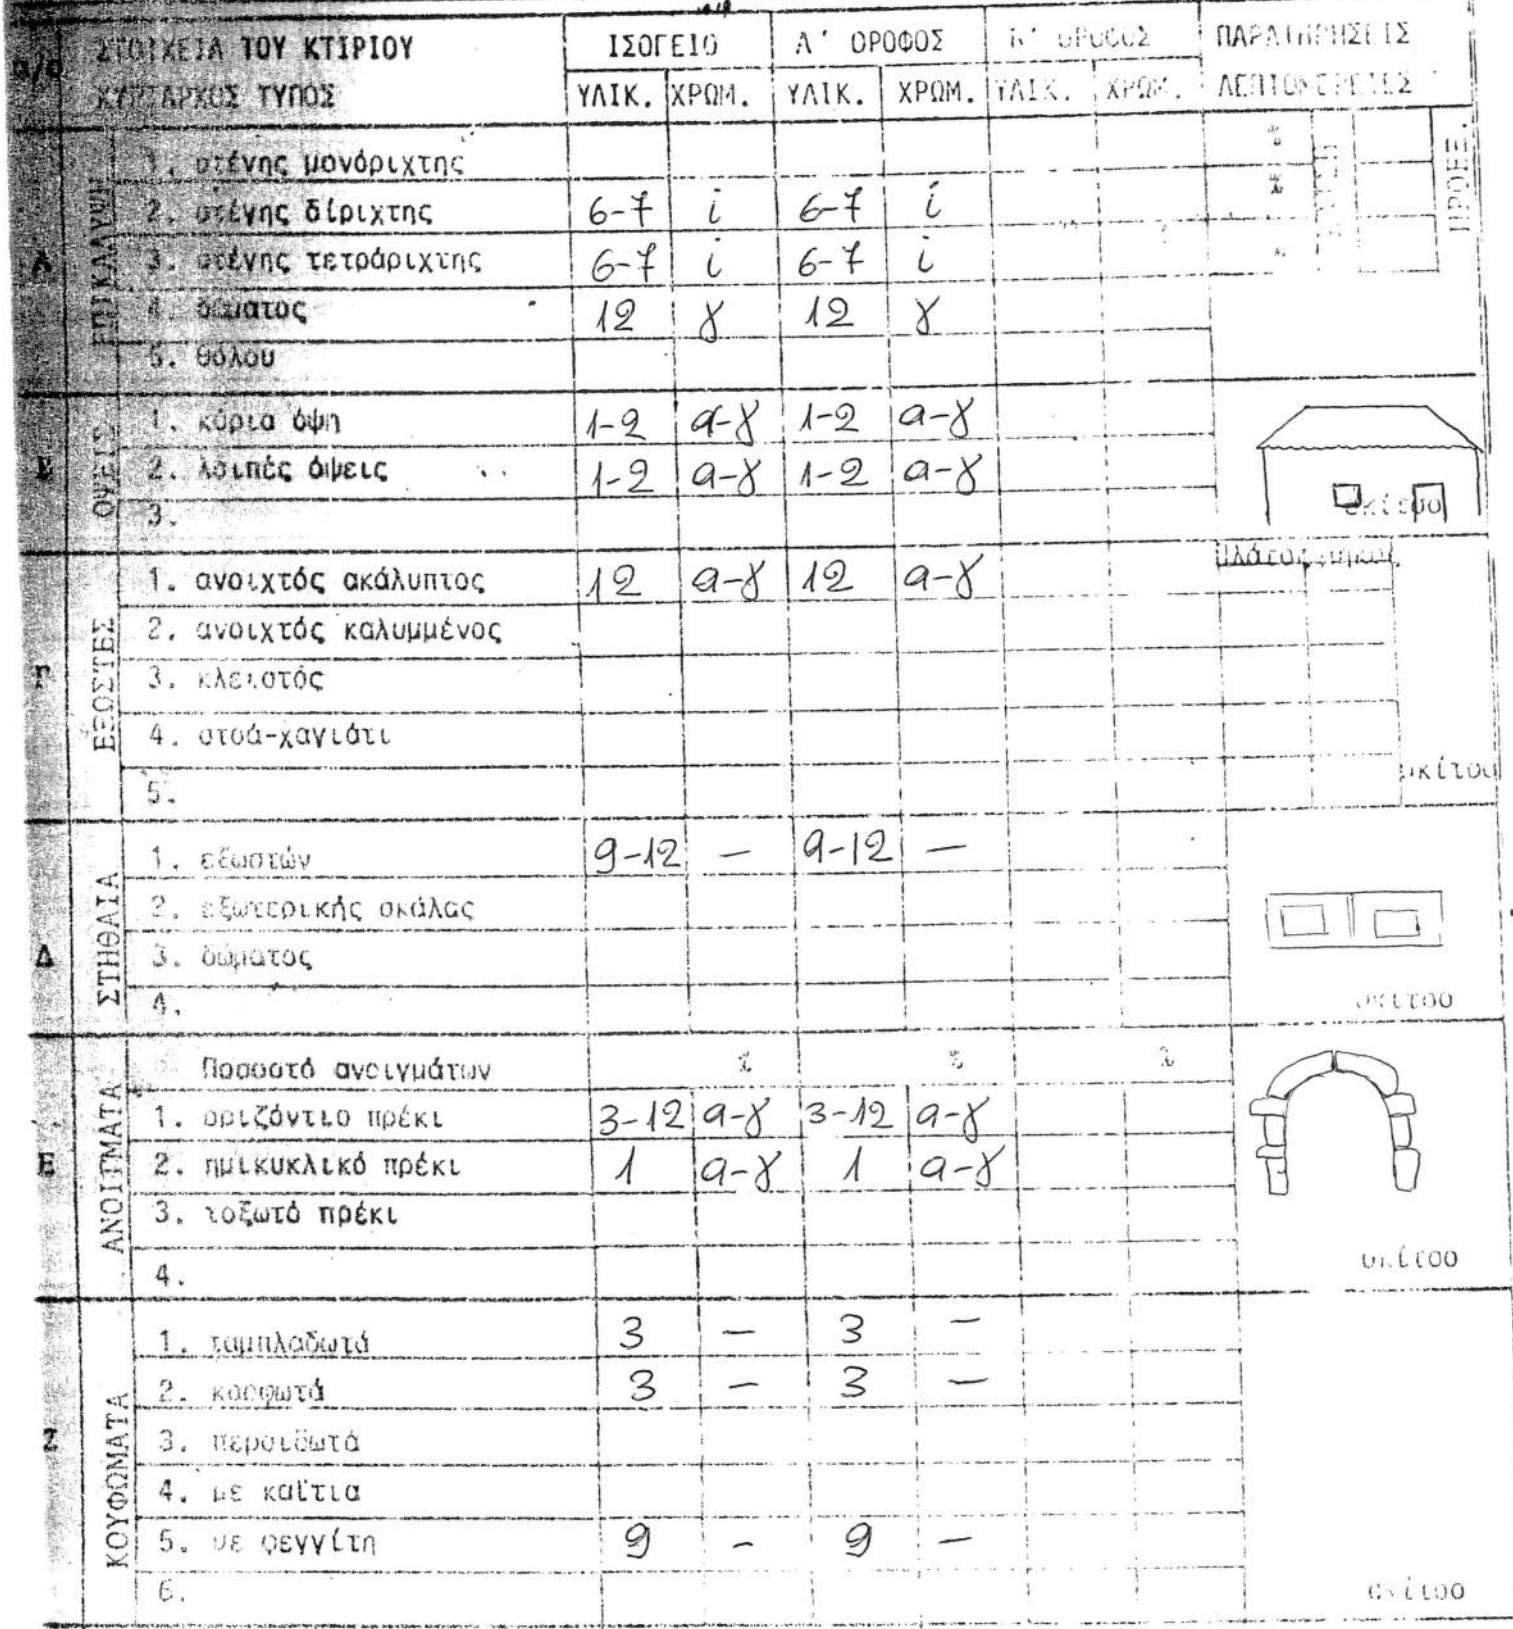 α/α ΣΤΟΙΧΕΙΑ ΤΟΥ ΚΤΙΡΙΟΥ ΙΣΟΓΕΙΟ Α' ΟΡΟΦΟΣ Β' ΟΡΟΦΟΣ ΠΑΡΑΤΗΡΗΣΕΙΣ
ΚΥΡΙΑΡΧΟΣ ΤΥΠΟΣ ΥΛΙΚ. ΧΡΩΜ. ΥΛΙΚ. ΧΡΩΜ. ΥΛΙΚ. ΧΡΩΜ. ΛΕΠΤΟΜΕΡΕΙΕΣ
Α ΕΠΙΚΑΛΥΨΗ ΠΡΟΕΞ.
1. στέγης μονόριχτης
2. στέγης δίριχτης 6-7 i 6-7 i
3. στέγης τετράριχτης 6-7 i 6-7 i
4. δώματος 12 γ 12 γ
5. θόλου
ΟΨΕΙΣ
1. κύρια όψη 1-2 α-γ 1-2 α-γ
2. λοιπές όψεις 1-2 α-γ 1-2 α-γ
3. σκίτσο
Γ ΕΞΩΣΤΕΣ πλάτος μήκος
1. ανοιχτός ακάλυπτος 12 α-γ 12 α-γ
2. ανοιχτός καλυμμένος
3. κλειστός
4. στοά-χαγιάτι
5. σκίτσο
Δ ΣΤΗΘΑΙΑ
1. εξωστών 9-12 — 9-12 —
2. εξωτερικής σκάλας
3. δώματος
4. σκίτσο
Ε ΑΝΟΙΓΜΑΤΑ
Ποσοστό ανοιγμάτων % % %
1. οριζόντιο πρέκι 3-12 α-γ 3-12 α-γ
2. ημικυκλικό πρέκι 1 α-γ 1 α-γ
3. τοξωτό πρέκι
4. σκίτσο
Ζ ΚΟΥΦΩΜΑΤΑ
1. ταμπλαδωτά 3 — 3 —
2. καρφωτά 3 — 3 —
3. περσιδωτά
4. με καΐτια
5. με φεγγίτη 9 — 9 —
6. σκίτσο